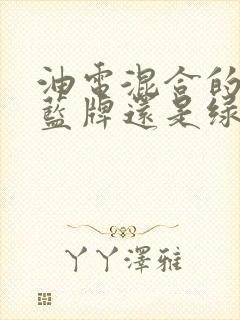 油電混合的
藍牌還是綠
丫丫澤雅